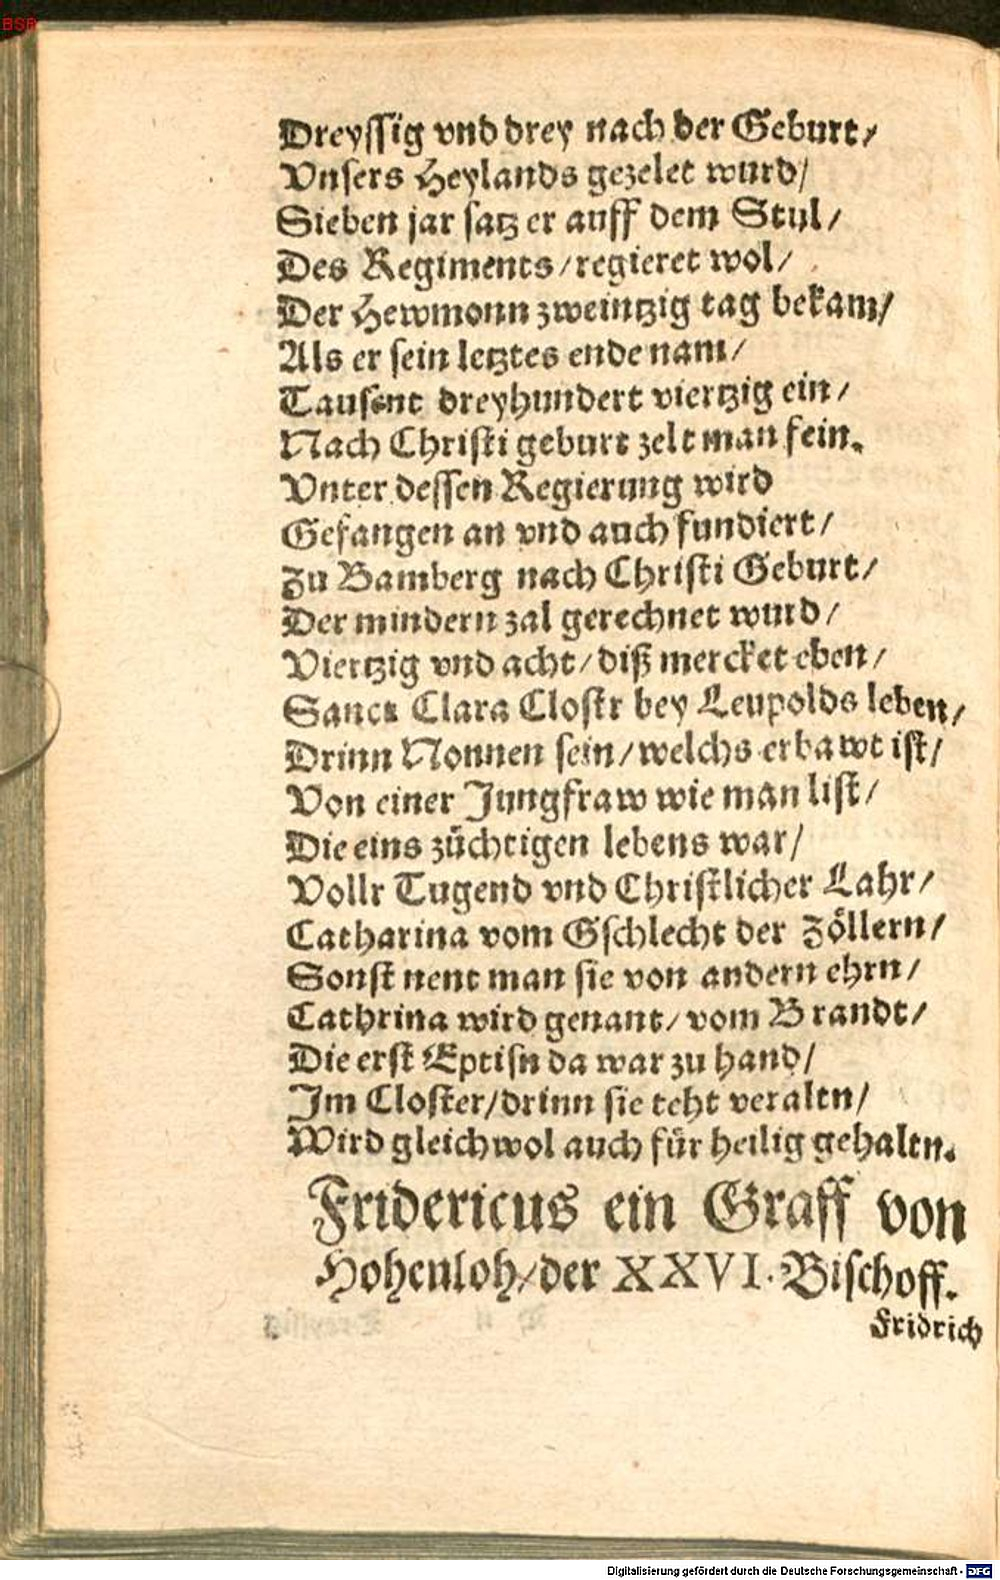 BSB
Dreyssig vnd drey nach der Geburt/
Vnsers Heylands gezelet wurd/
Sieben jar satz er auff dem Stul/
Des Regiments/regieret wol/
Der Hewmonn zweintzig tag bekam/
Als er sein letztes ende nam/
Tausent dreyhundert viertzig ein/
Nach Christi geburt zelt man fein.
Vnter dessen Regierung wird
Gefangen an vnd auch fundiert/
Zu Bamberg nach Christi Geburt/
Der mindern zal gerechnet wurd/
Viertzig vnd acht/diß mercket eben/
Sanct Clara Clostr bey Leupolds leben/
Drinn Nonnen sein/welchs erbawt ist/
Von einer Jungfraw wie man list/
Die eins züchtigen lebens war/
Vollr Tugend vnd Christlicher Lahr/
Catharina vom Gschlecht der Zöllern/
Sonst nent man sie von andern ehrn/
Cathrina wird genant/vom Brandt/
Die erst Eptisn da war zu hand/
Im Closter/drinn sie teht veraltn/
Wird gleichwol auch für heilig gehaltn.
Fridericus ein Graff von
Hohenloh/der XXVI. Bischoff.
Fridrich
Digitalisierung gefördert durch die Deutsche Forschungsgemeinschaft - DFG